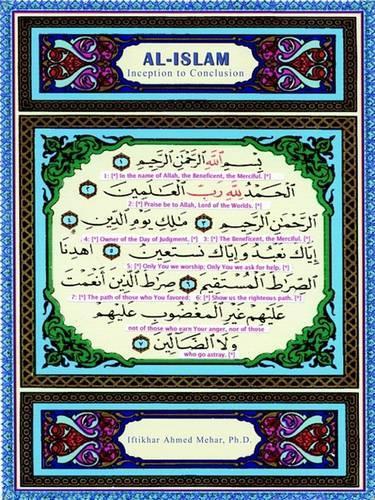 AL-ISLAM
Inception to Conclusion
بِسْمِ اللَّهِ الرَّحْمَٰنِ الرَّحِيمِ ١
1: [*] In the name of Allah, the Beneficent, the Merciful. [*]
الْحَمْدُ لِلَّهِ رَبِّ الْعَالَمِينَ ٢
2: [*] Praise be to Allah, Lord of the Worlds. [*]
الرَّحْمَٰنِ الرَّحِيمِ ٣ مَالِكِ يَوْمِ الدِّينِ ٤
4: [*] Owner of the Day of Judgment. [*] 3: [*] The Beneficent, the Merciful. [*]
إِيَّاكَ نَعْبُدُ وَإِيَّاكَ نَسْتَعِينُ ٥ اهْدِنَا
5: [*] Only You we worship; Only You we ask for help. [*]
الصِّرَاطَ الْمُسْتَقِيمَ ٦ صِرَاطَ الَّذِينَ أَنْعَمْتَ
7: [*] The path of those who You favored; 6: [*] Show us the righteous path. [*]
عَلَيْهِمْ غَيْرِ الْمَغْضُوبِ عَلَيْهِمْ
not of those who earn Your anger, nor of those
وَلَا الضَّالِّينَ ٧
who go astray. [*]
Iftikhar Ahmed Mehar, Ph.D.